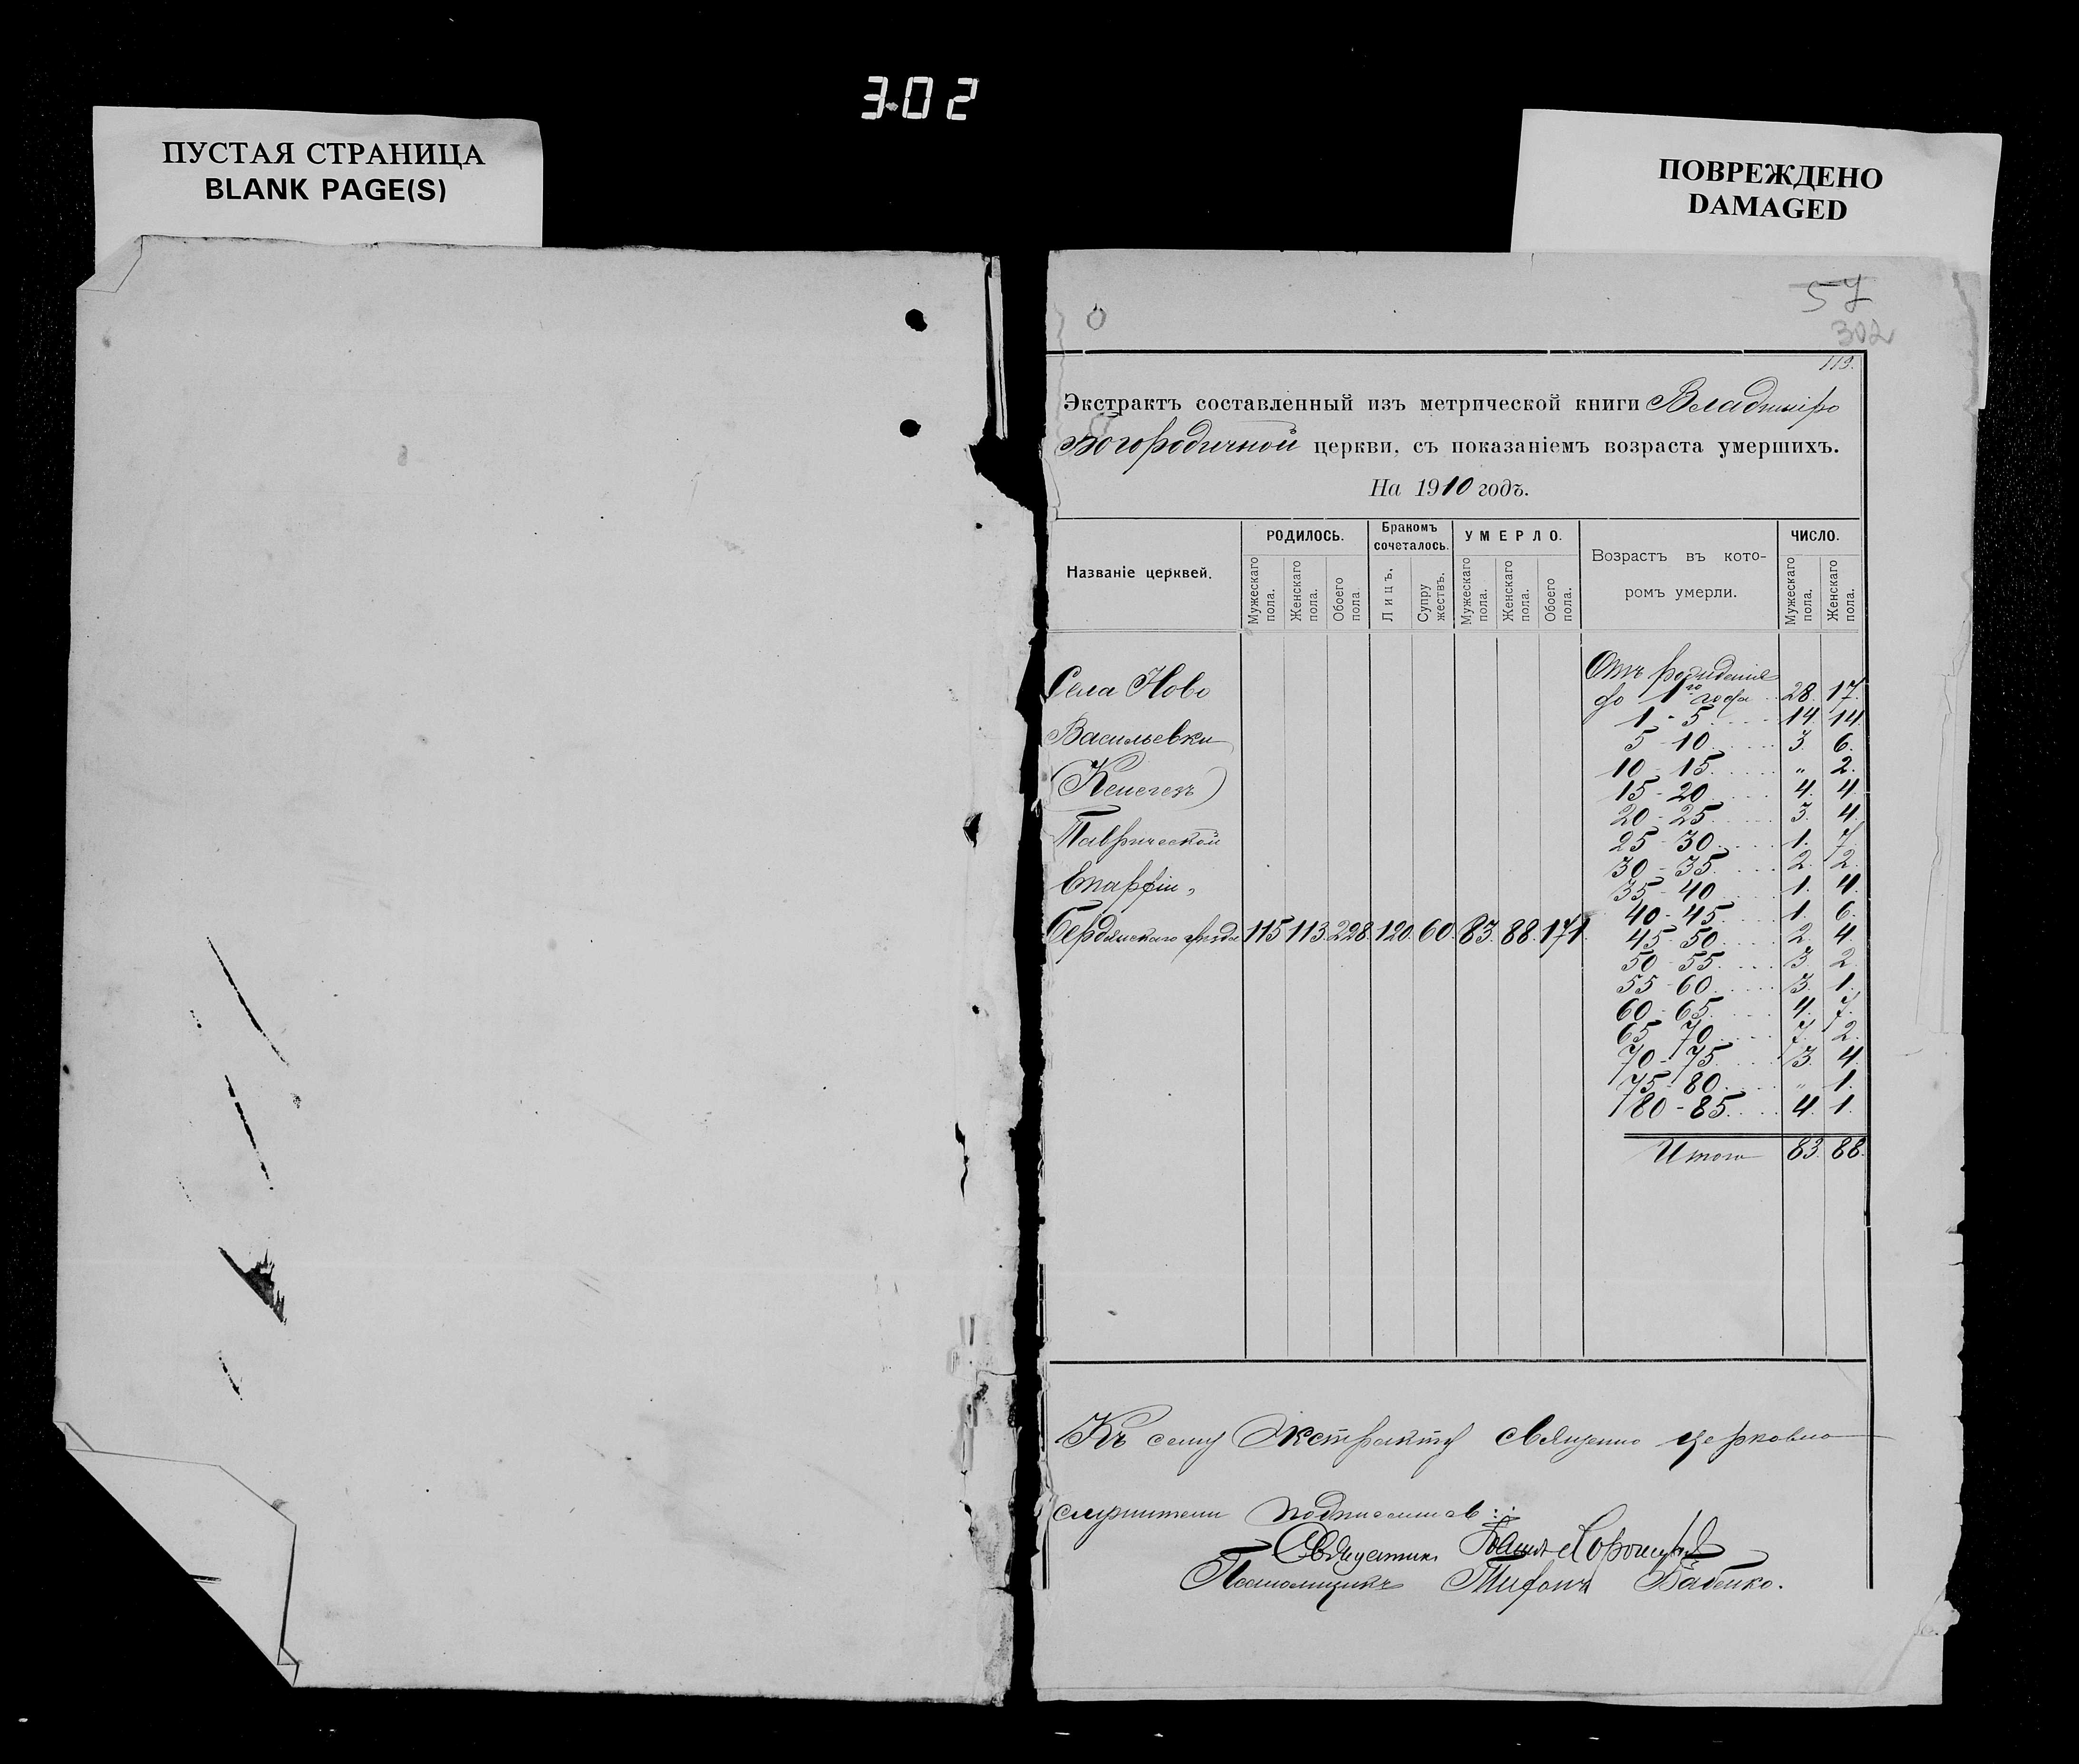 3.02
ПУСТАЯ СТРАНИЦА
BLANK PAGE(S)
ПОВРЕЖДЕНО
DAMAGED
57
302
113.
Экстрактъ составленный изъ метрической книги Владимиро
Богородичной церкви, съ показаніемъ возраста умершихъ.
На 1910 годъ.
Названіе церквей.
РОДИЛОСЬ.
Мужескаго пола.
Женскаго пола.
Обоего пола
Бракомъ сочеталось.
Лицъ.
Супружествъ.
УМЕРЛО.
Мужескаго пола.
Женскаго пола.
Обоего пола.
Возрастъ въ которомъ умерли.
ЧИСЛО.
Мужескаго пола.
Женскаго пола.
Села Ново
Васильевки
(Кенегезъ)
Таврической
Епархіи,
Бердянскаго уѣзда 115 113. 228. 120. 60. 83. 88. 171.
Отъ рожденія
до 1го года 28. 17.
1 - 5 14. 14.
5 - 10 3. 6.
10 - 15 " 2.
15 - 20 4. 4.
20 - 25 3. 4.
25 - 30 1. 7.
30 - 35 2. 2.
35 - 40 1. 4.
40 - 45 1. 6.
45 - 50 2. 4.
50 - 55 3. 2.
55 - 60 3. 1.
60 - 65 4. 7.
65 - 70 7. 2.
70 - 75 3. 4.
75 - 80 " 1.
80 - 85 4. 1.
Итого 83. 88.
Къ сему Экстракту священно церковно
служители подписались:
Священникъ Іоаннъ
Псаломщикъ Тифонъ Бабенко.